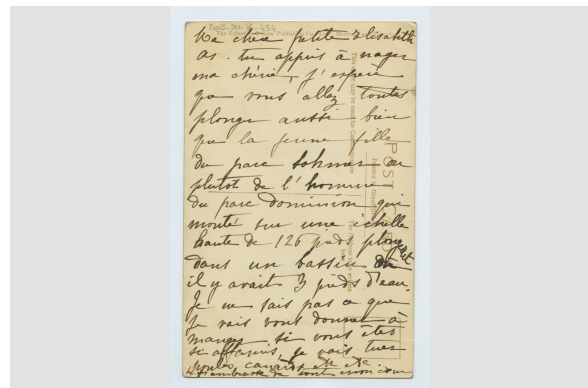 2013.30.16.484
Ma chère petite Elisabeth
as-tu appris à nager
ma chérie, j'espère
que vous allez toutes
plonger aussi bien
que la jeune fille
du parc Sohmer ou
plutôt de l'homme
du parc Dominion qui
monté sur une échelle
haute de 126 pieds plongeait
dans un bassin où
il y avait 3 pieds d'eau.
Je ne sais pas ce que
je vais vous donner à
manger si vous êtes
si affamés, je vais tuer
poules, canards etc etc.
Je t'embrasse de tout mon cœur
POST CARD